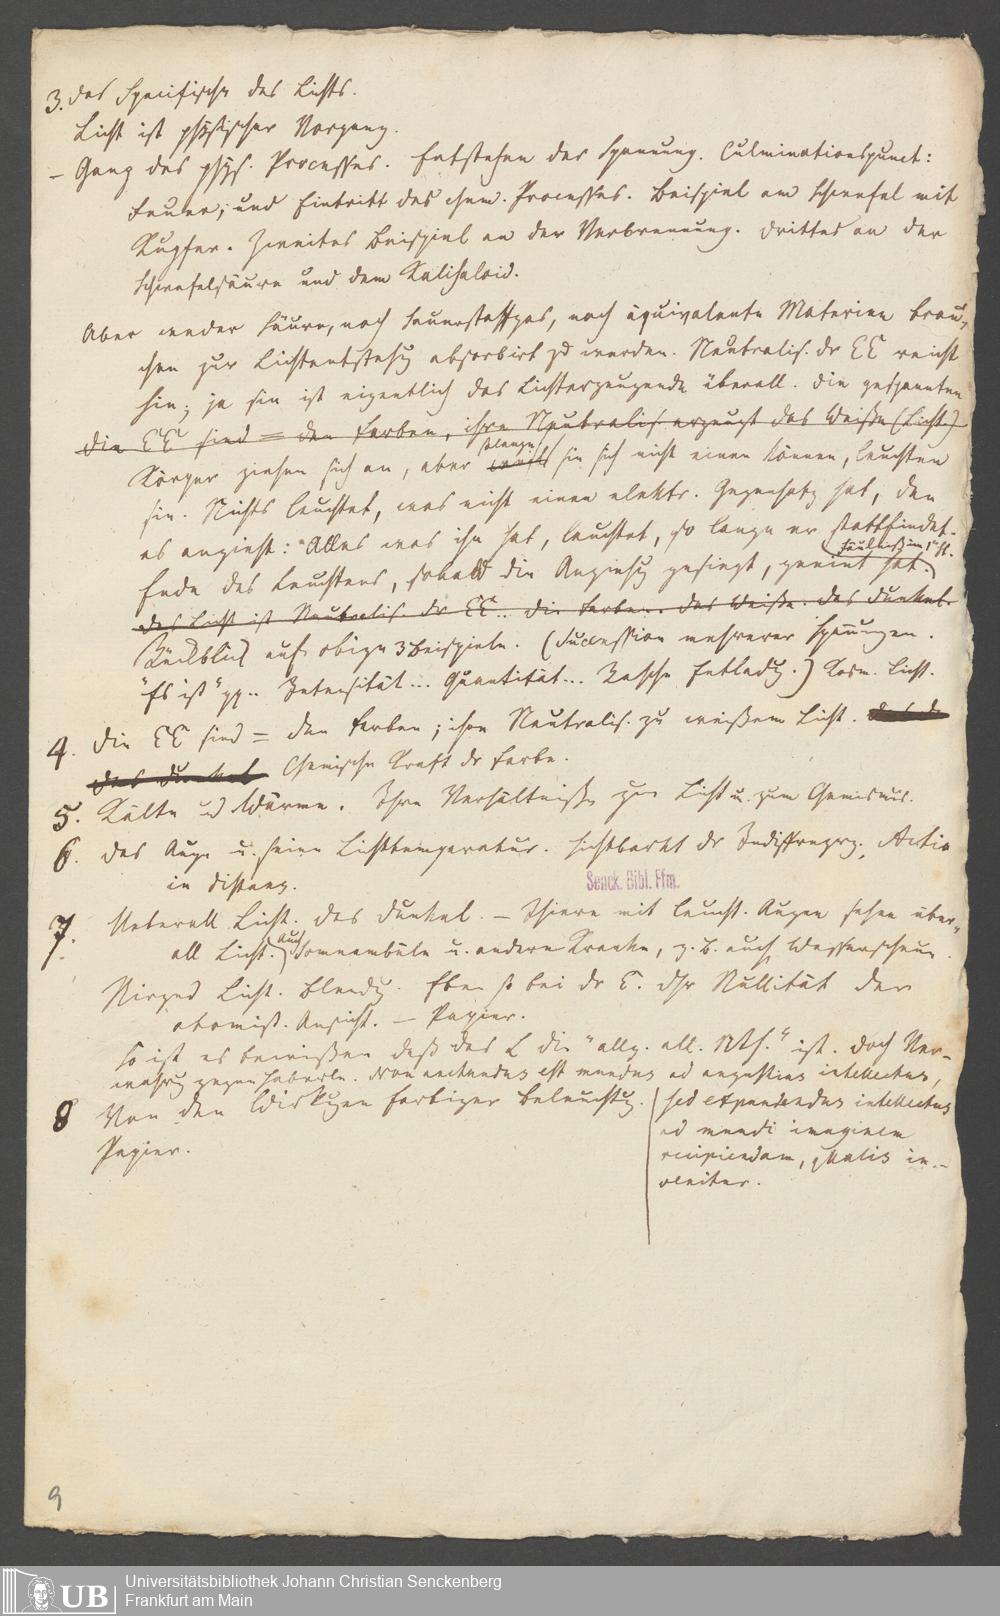 3. Das Specifische des Lichts.
Licht ist physischer Vorgang.
– Gang des phys. Processes. Entstehen der Spannung. Culminationspunct:
Feuer; und Eintritt des chem. Processes. Beispiel am Schwefel mit
Kupfer. Zweites Beispiel an der Verbrennung. Drittes an der
Schwefelsäure und dem Kalihaloid.
Aber weder Säure, noch Sauerstoffgas, noch äquivalente Materien brau-
chen zur Lichtentstehg absorbirt zu werden. Neutralis. dr EE reicht
hin; ja sie ist eigentlich das Lichterzeugende überall. Die gespannten
Die EE sind = den Farben, ihre Neutralis. erzeugt das Weiße (Licht.)
Körper ziehen sich an, aber solange sie sich nicht einen können, leuchten
sie. Nichts leuchtet, was nicht einen elektr. Gegensatz hat, den
es anzieht: Alles was ihn hat, leuchtet, so lange er stattfindet.
Ende des Leuchtens, sobald die Anziehg gesiegt, geeint hat.
Das Licht ist Neutralis. dr EE.. Die Farben. Das Weiße. Das Dunkel.
Rückblick auf obige 3 Beispiele. (Succession mehrerer Spannungen.
"Es ist" pp.. Intensität... Quantität... Rasche Entladg.) Kosm. Licht.
4. Die EE sind = den Farben; ihre Neutralis. zu weißem Licht.
das Dunkel Chemische Kraft dr Farbe.
5. Kälte und Wärme. Ihre Verhältniße zum Licht u. zum Chemismus.
6. Das Auge u. seine Lichttemperatur. Sichtbarkt dr Indifferenz. Actio
in distans.
Senck. Bibl. Ffm.
7. Ueberall Licht. Das Dunkel. – Thiere mit leucht. Augen sehen über-
all Licht. Auch Somnambüle u. andere Kranke, z. B. auch Wasserscheue.
Nirgend Licht. Blendg. Eben so bei dr E. Die Nullität der
atomist. Ansicht. – Papier.
So ist es bewiesen daß das L die "allg. all. " ist. Doch Ver-
wahrg gegen Haberle. Non arctandus est mundus ad angustias intellectus,
sed expandendus intellectus
ad mundi imaginem
recipiendam, qualis in-
venitur.
8 Von den Wirkgen farbiger Beleuchtg.
Papier.
9
UB
Universitätsbibliothek Johann Christian Senckenberg
Frankfurt am Main